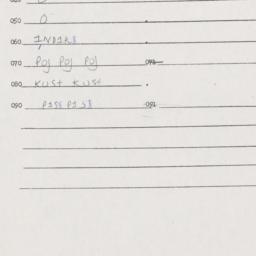 050 O
060 INDIA8
070 POJ POJ POJ 071
080 KUST KUST
090 P1S8 P1S8 091